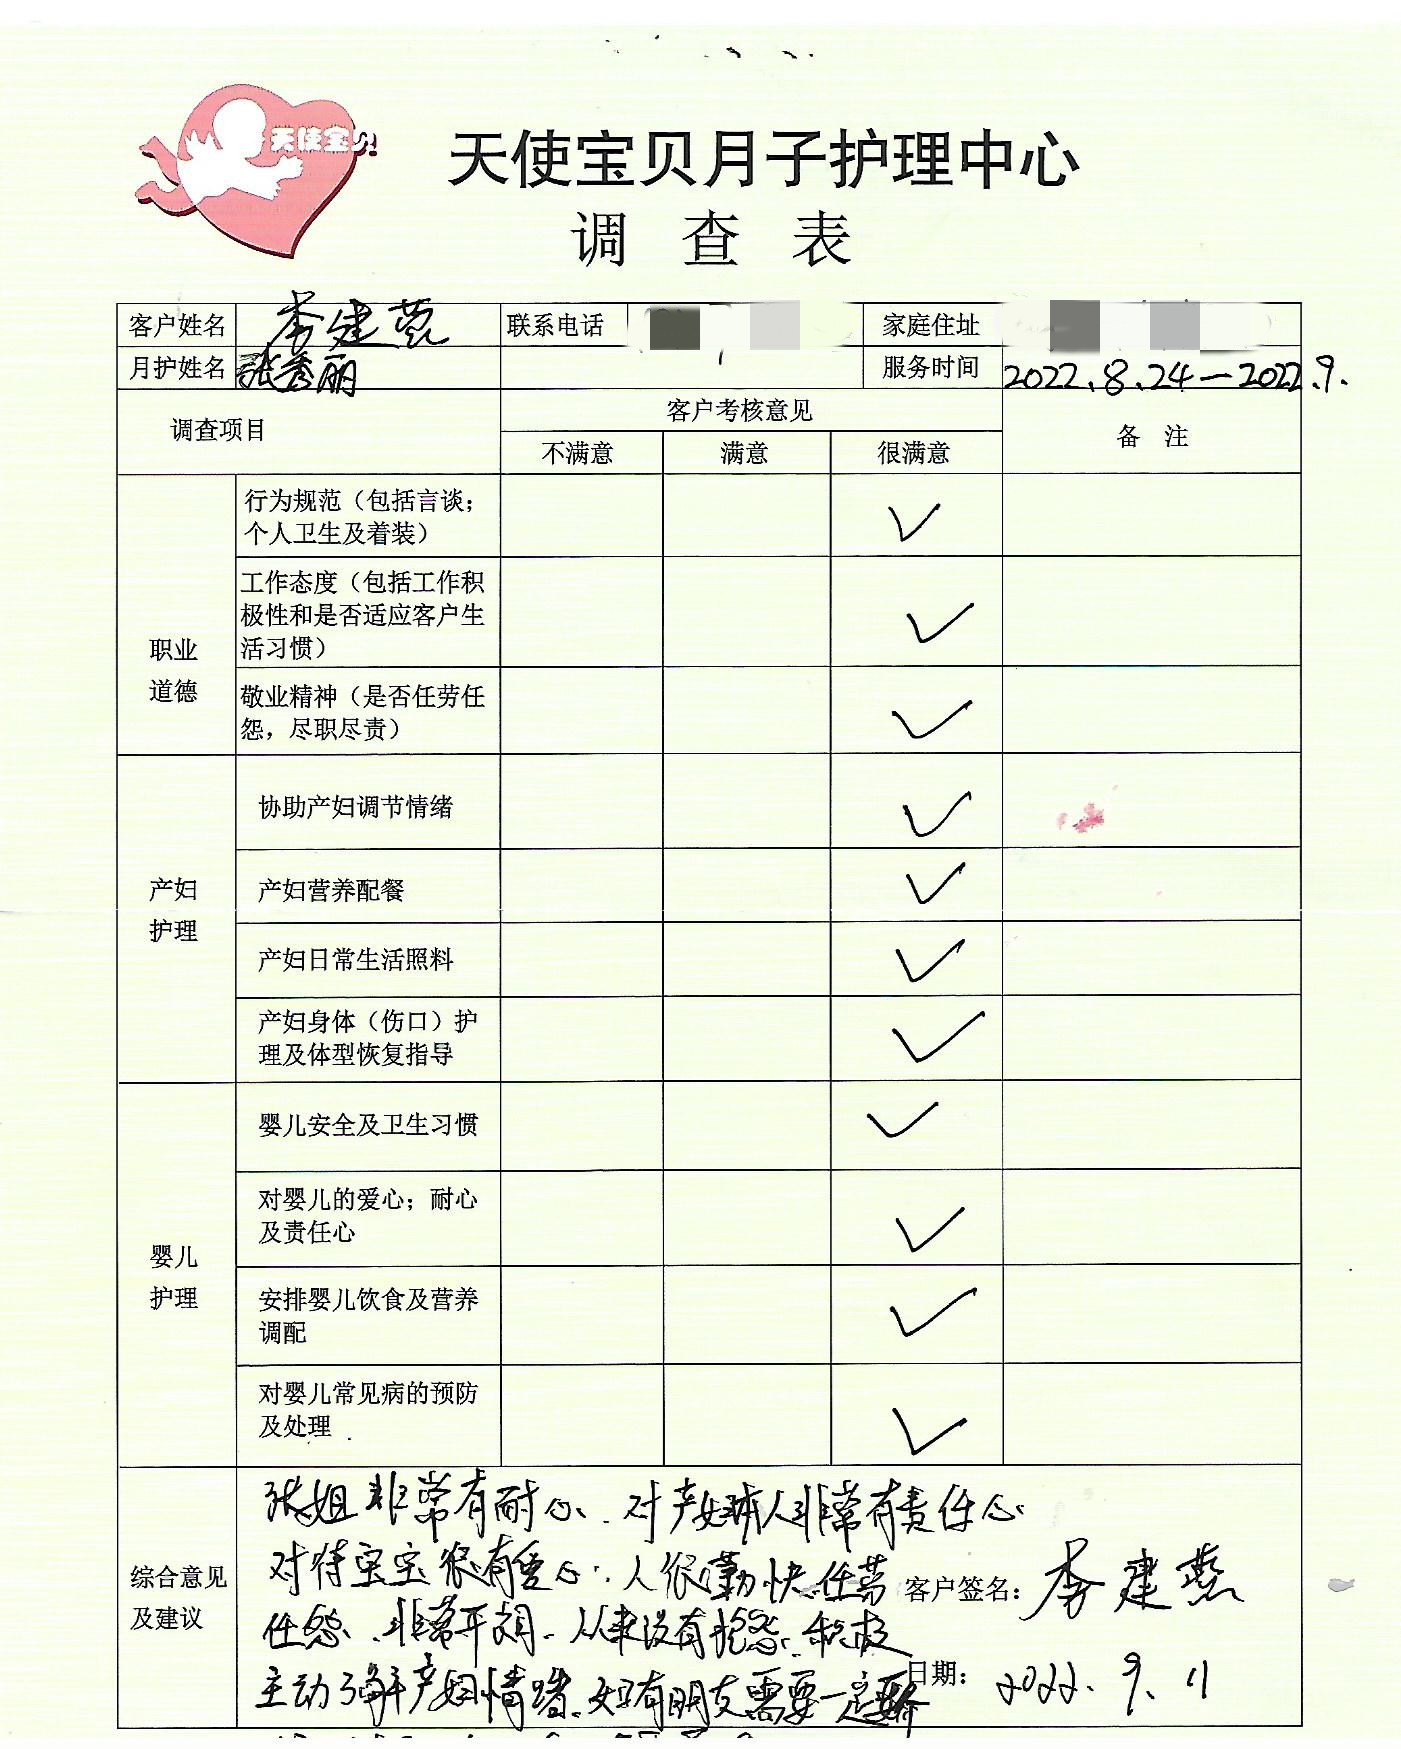 天使宝贝
天使宝贝月子护理中心
调查表
客户姓名 李建燕 联系电话 家庭住址
月护姓名 张秀丽 服务时间 2022.8.24—2022.9.
调查项目 客户考核意见 备注
不满意 满意 很满意
职业
道德
行为规范（包括言谈；
个人卫生及着装）
工作态度（包括工作积
极性和是否适应客户生
活习惯）
敬业精神（是否任劳任
怨，尽职尽责）
产妇
护理
协助产妇调节情绪
产妇营养配餐
产妇日常生活照料
产妇身体（伤口）护
理及体型恢复指导
婴儿
护理
婴儿安全及卫生习惯
对婴儿的爱心；耐心
及责任心
安排婴儿饮食及营养
调配
对婴儿常见病的预防
及处理
综合意见
及建议
张姐非常有耐心、对产妇病人非常有责任心
对待宝宝很有爱心．人很勤快任劳
任怨、非常开朗、从来没有抱怨、积极
主动了解产妇情绪、如有朋友需要一定
客户签名：李建燕
日期：2022.9.11